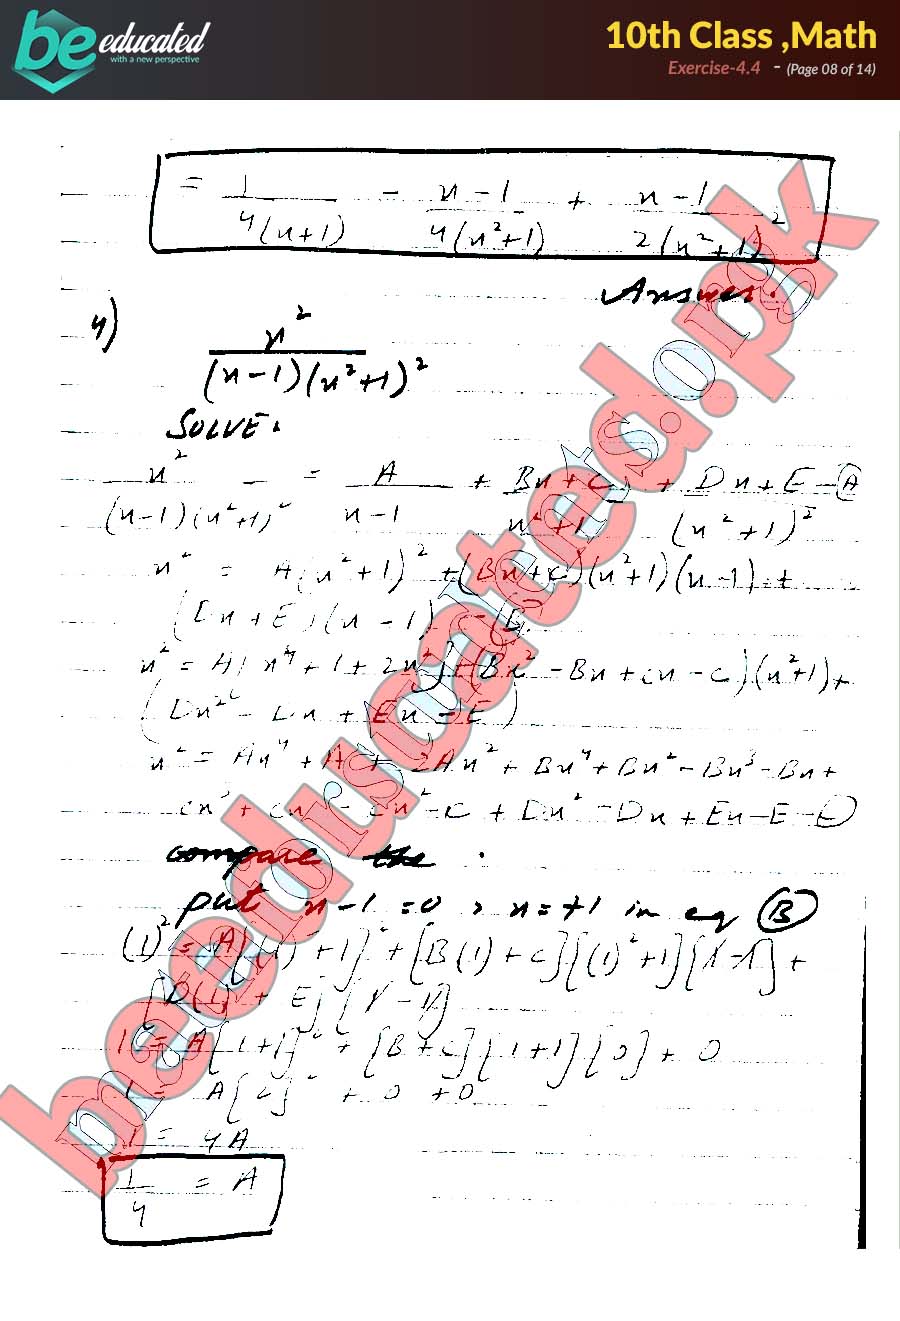 be educated
with a new perspective
10th Class ,Math
Exercise-4.4 - (Page 08 of 14)
= 1/4(x+1) - x-1/4(x²+1) + x-1/2(x²+1)²
Answer.
4) x²/(x-1)(x²+1)²
SOLVE.
x²/(x-1)(x²+1)² = A/x-1 + Bx+C/x²+1 + Dx+E/(x²+1)² - Ⓐ
x² = A(x²+1)² + (Bx+C)(x²+1)(x-1) +
(Dx+E)(x-1) - Ⓑ
x² = A(x⁴+1+2x²) + (Bx² - Bx + Cx - C)(x²+1) +
(Dx² - Dx + Ex - E)
x² = Ax⁴ + A + 2Ax² + Bx⁴ + Bx² - Bx³ - Bx +
Cx³ + Cx - Cx² - C + Dx² - Dx + Ex - E - Ⓒ
compare the
put x-1 = 0, x = +1 in eq Ⓑ
(1)² = A[(1)²+1]² + [B(1)+C][(1)²+1][1-1] +
[D(1)+E][1-1]
1 = A[1+1]² + [B+C][1+1][0] + 0
1 = A[2]² + 0 + 0
1 = 4A
1/4 = A
beeducated.pk